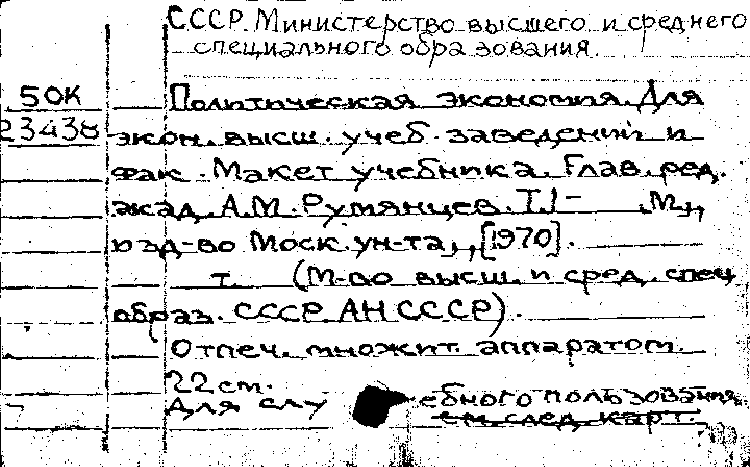 СССР. Министерство высшего и среднего
специального образования.
50К
Политическая экономия. Для
23438
экон. высш. учеб. заведений и
фак. Макет учебника. Глав. ред.
акад. А.М. Румянцев. Т.1- М.,
изд-во Моск. ун-та, , [1970].
т. (М-во высш. и сред. спец
образ. СССР. АН СССР).
Отпеч. множит. аппаратом.
22 cm.
Для слу ебного пользования.
см. след. карт.